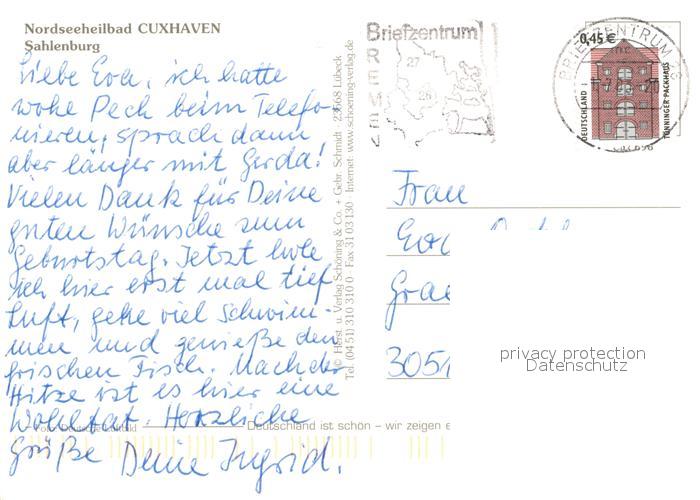 Nordseeheilbad CUXHAVEN
Sahlenburg
Liebe Eva, ich hatte
wohe Pech beim Telefo-
nieren, sprach dann
aber länger mit Gerda!
Vielen Dank für Deine
guten Wünsche zum
Geburtstag. Jetzt hole
ich hier erst mal tief
Luft, gehe viel schwim-
men und genieße den
frischen Fisch. Nach der
Hitze ist es hier eine
Wohltat. Herzliche
Grüße Deine Ingrid.
Deutschland ist schön – wir zeigen e
© Herst. u. Verlag Schöning & Co. + Gebr. Schmidt · 23558 Lübeck
Tel. (04 51) 310 310 · Fax 31 03 130 · Internet: www.schoening-verlag.de
Briefzentrum
BREMEN
27
28
BRIEFZENTRUM 28
0,45 €
DEUTSCHLAND
TÖNNINGER PACKHAUS
Frau
Eva
3051
privacy protection
Datenschutz